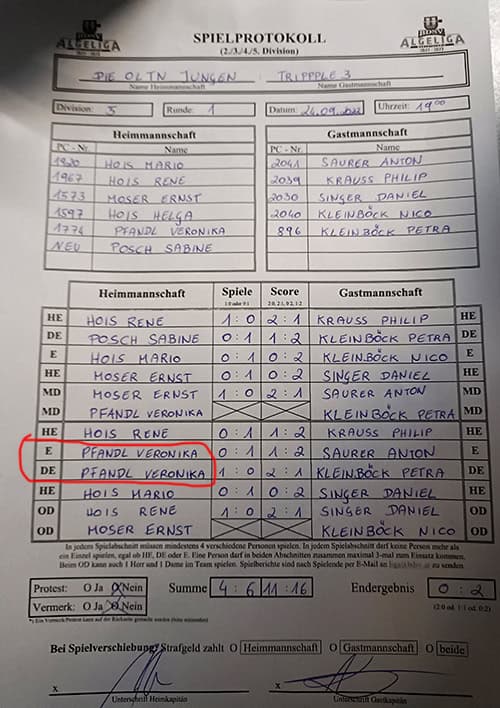 ALGELIGA
SPIELPROTOKOLL
(2./3./4./5. Division)
ALGELIGA
DIE OLTN JUNGEN TRIPPPLE 3
Name Heimmannschaft Name Gastmannschaft
Division: 5 Runde: 1 Datum: 24.09.2022 Uhrzeit: 19 00
Heimmannschaft Gastmannschaft
PC - Nr. Name PC - Nr. Name
1920 HOIS MARIO 2041 SAURER ANTON
1967 HOIS RENE 2039 KRAUSS PHILIP
1573 MOSER ERNST 2030 SINGER DANIEL
1597 HOIS HELGA 2040 KLEINBÖCK NICO
1774 PFANDL VERONIKA 896 KLEINBÖCK PETRA
NEU POSCH SABINE
Heimmannschaft Spiele Score Gastmannschaft
1:0 oder 0:1 2:0, 2:1, 0:2, 1:2
HE HOIS RENE 1 : 0 2 : 1 KRAUSS PHILIP HE
DE POSCH SABINE 0 : 1 1 : 2 KLEINBÖCK PETRA DE
E HOIS MARIO 0 : 1 0 : 2 KLEINBÖCK NICO E
HE MOSER ERNST 0 : 1 0 : 2 SINGER DANIEL HE
MD MOSER ERNST 1 : 0 2 : 1 SAURER ANTON MD
MD PFANDL VERONIKA KLEINBÖCK PETRA MD
HE HOIS RENE 0 : 1 1 : 2 KRAUSS PHILIP HE
E PFANDL VERONIKA 0 : 1 1 : 2 SAURER ANTON E
DE PFANDL VERONIKA 1 : 0 2 : 1 KLEINBÖCK PETRA DE
HE HOIS MARIO 0 : 1 0 : 2 SINGER DANIEL HE
OD HOIS RENE 1 : 0 2 : 1 SINGER DANIEL OD
OD MOSER ERNST KLEINBÖCK NICO OD
In jedem Spielabschnitt müssen mindestens 4 verschiedene Personen spielen. In jedem Spielabschnitt darf keine Person mehr als
ein Einzel spielen, egal ob HE, DE oder E. Eine Person darf in beiden Abschnitten zusammen maximal 3-mal zum Einsatz kommen.
Beim OD kann auch 1 Herr und 1 Dame im Team spielen. Spielberichte sind nach Spielende per E-Mail an zu senden
Protest: O Ja O Nein Summe 4 : 6 11 : 16 Endergebnis 0 : 2
Vermerk: O Ja O Nein (2:0 od. 1:1 od. 0:2)
*) Ein Vermerk/Protest kann auf der Rückseite gemacht werden (bitte ankreuzen)
Bei Spielverschiebung: Strafgeld zahlt O Heimmannschaft O Gastmannschaft O beide
x x
Unterschrift Heimkapitän Unterschrift Gastkapitän